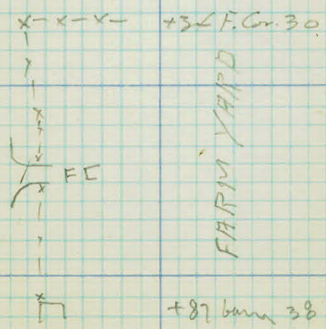 F. Cor. 30
FARM YARD
FE
+87 barn 38